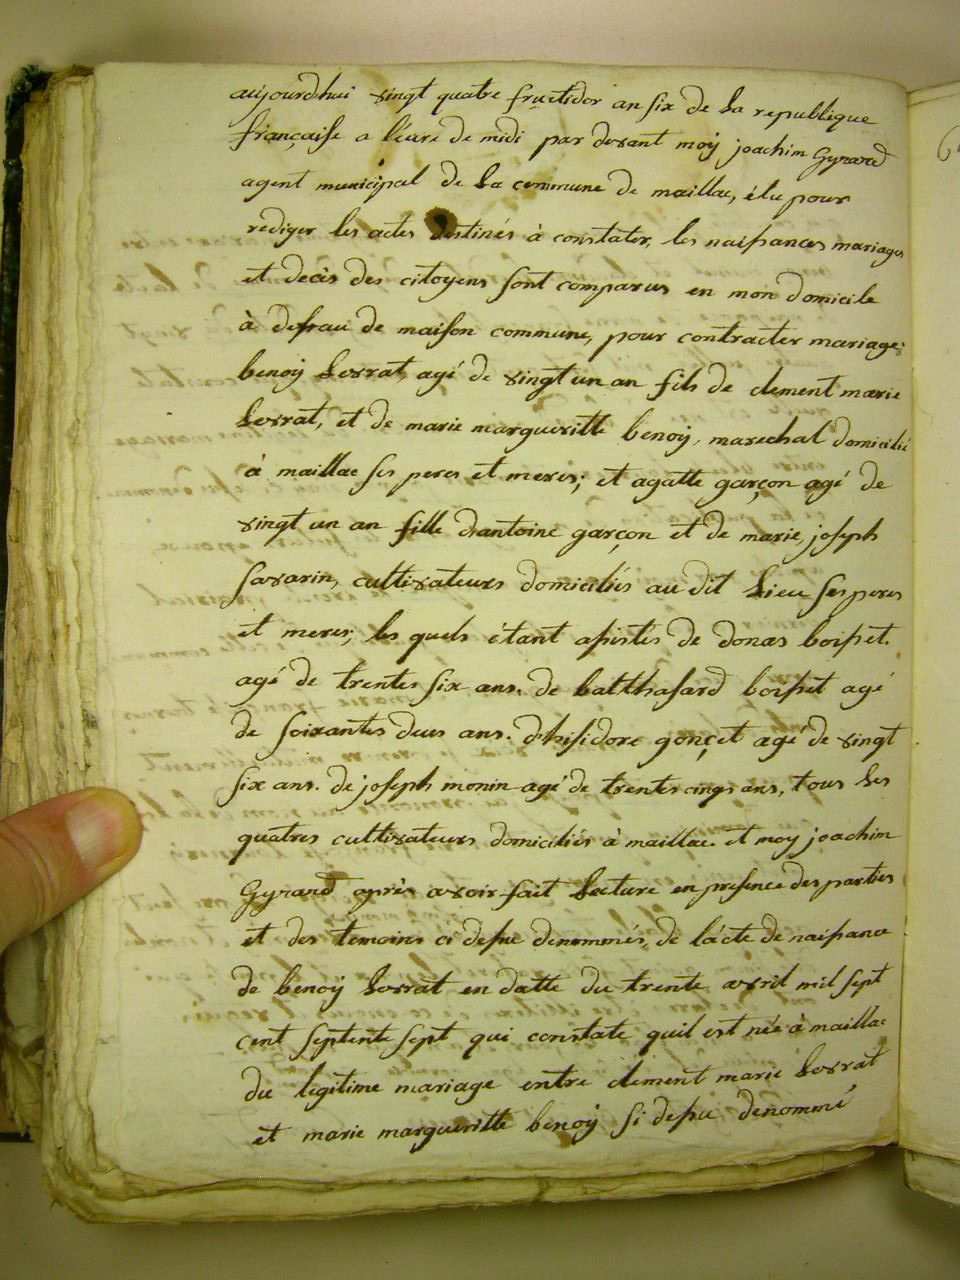 aujourdhui vingt quatre fructidor an six de la republique
française a l'eure de midi par devant moy joachim Gyraud
agent municipal de la commune de maillac, élu pour
rediger les actes destinés à constater, les naissances mariages
et decès des citoyens sont comparus en mon domicile
à defaut de maison commune, pour contracter mariage:
benoy Lorrat, agé de vingt un an fils de clement marie
Lorrat, et de marie margueritte benoy, marechal domicilié
à maillac ses peres et meres; et agatte garçon agé de
vingt un an fille d'antoine garçon et de marie, joseph
savarin, cultivateurs domiciliés au dit Lieu ses peres
et meres, les quels étant assistés de donas boisset.
agé de trentes six ans. de balthasard boisset agé
de soixantes deus ans. d'hisidore gonçet agé de vingt
six ans. de joseph monin agé de trentes cinqs ans, tous Les
quatres cultivateurs domiciliés à maillac. et moy joachim
Gyraud après avoir fait Lecture en presence des parties
et des temoins ci desue denommés, de l'acte de naissance
de benoy Lorrat en datte du trente avril mil sept
cent septente sept qui constate quil est née à maillac
du legitime mariage entre clement marie Lorrat
et marie margueritte benoy si desue denommé